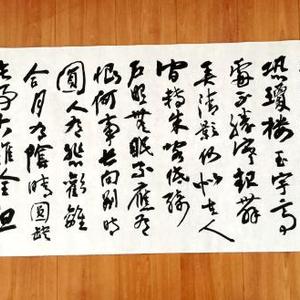 恐瓊樓玉宇高
處不勝寒起舞
弄清影何似在人
間轉朱閣低綺
戶照無眠不應有
恨何事長向別時
圓人有悲歡離
合月有陰晴圓缺
此事古難全但